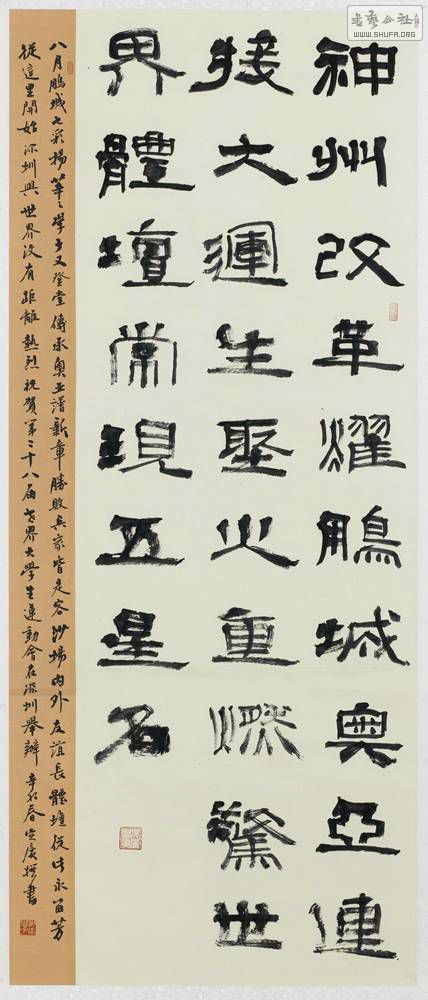 書藝公社
WWW.SHUFA.ORG
神州改革燿鵬城奧亞連
接大運生聖火重燃驚世
界體壇常現五星名
八月鵬城七彩揚莘〻學子又登堂傳承奧亞譜新章勝敗兵家皆是客沙場內外友誼長體壇從此永留芳
從這里開始深圳與世界沒有距離熱烈祝賀第二十八届世界大學生運動會在深圳舉辦辛卯春慶撰書